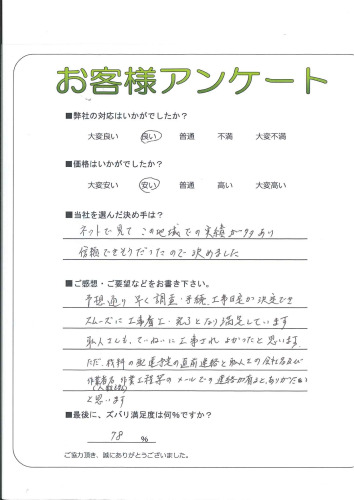 お客様アンケート
■弊社の対応はいかがでしたか？
大変良い 良い 普通 不満 大変不満
■価格はいかがでしたか？
大変安い 安い 普通 高い 大変高い
■当社を選んだ決め手は？
ネットで見て この地域での実績が多々あり
信頼できそうだったので決めました
■ご感想・ご要望などをお書き下さい。
予想通り 早く調査・手続 工事日定が決定でき
スムーズに工事着工・完了となり満足しています
職人さんも、ていねいに工事され よかったと思います
ただ、材料の配達予定の直前連絡と職人さんの会社名及び
作業者名 作業工程等のメールでの連絡が有るとありがたい
(人数含め)
と思います
■最後に、ズバリ満足度は何％ですか？
98 ％
ご協力頂き、誠にありがとうございました。